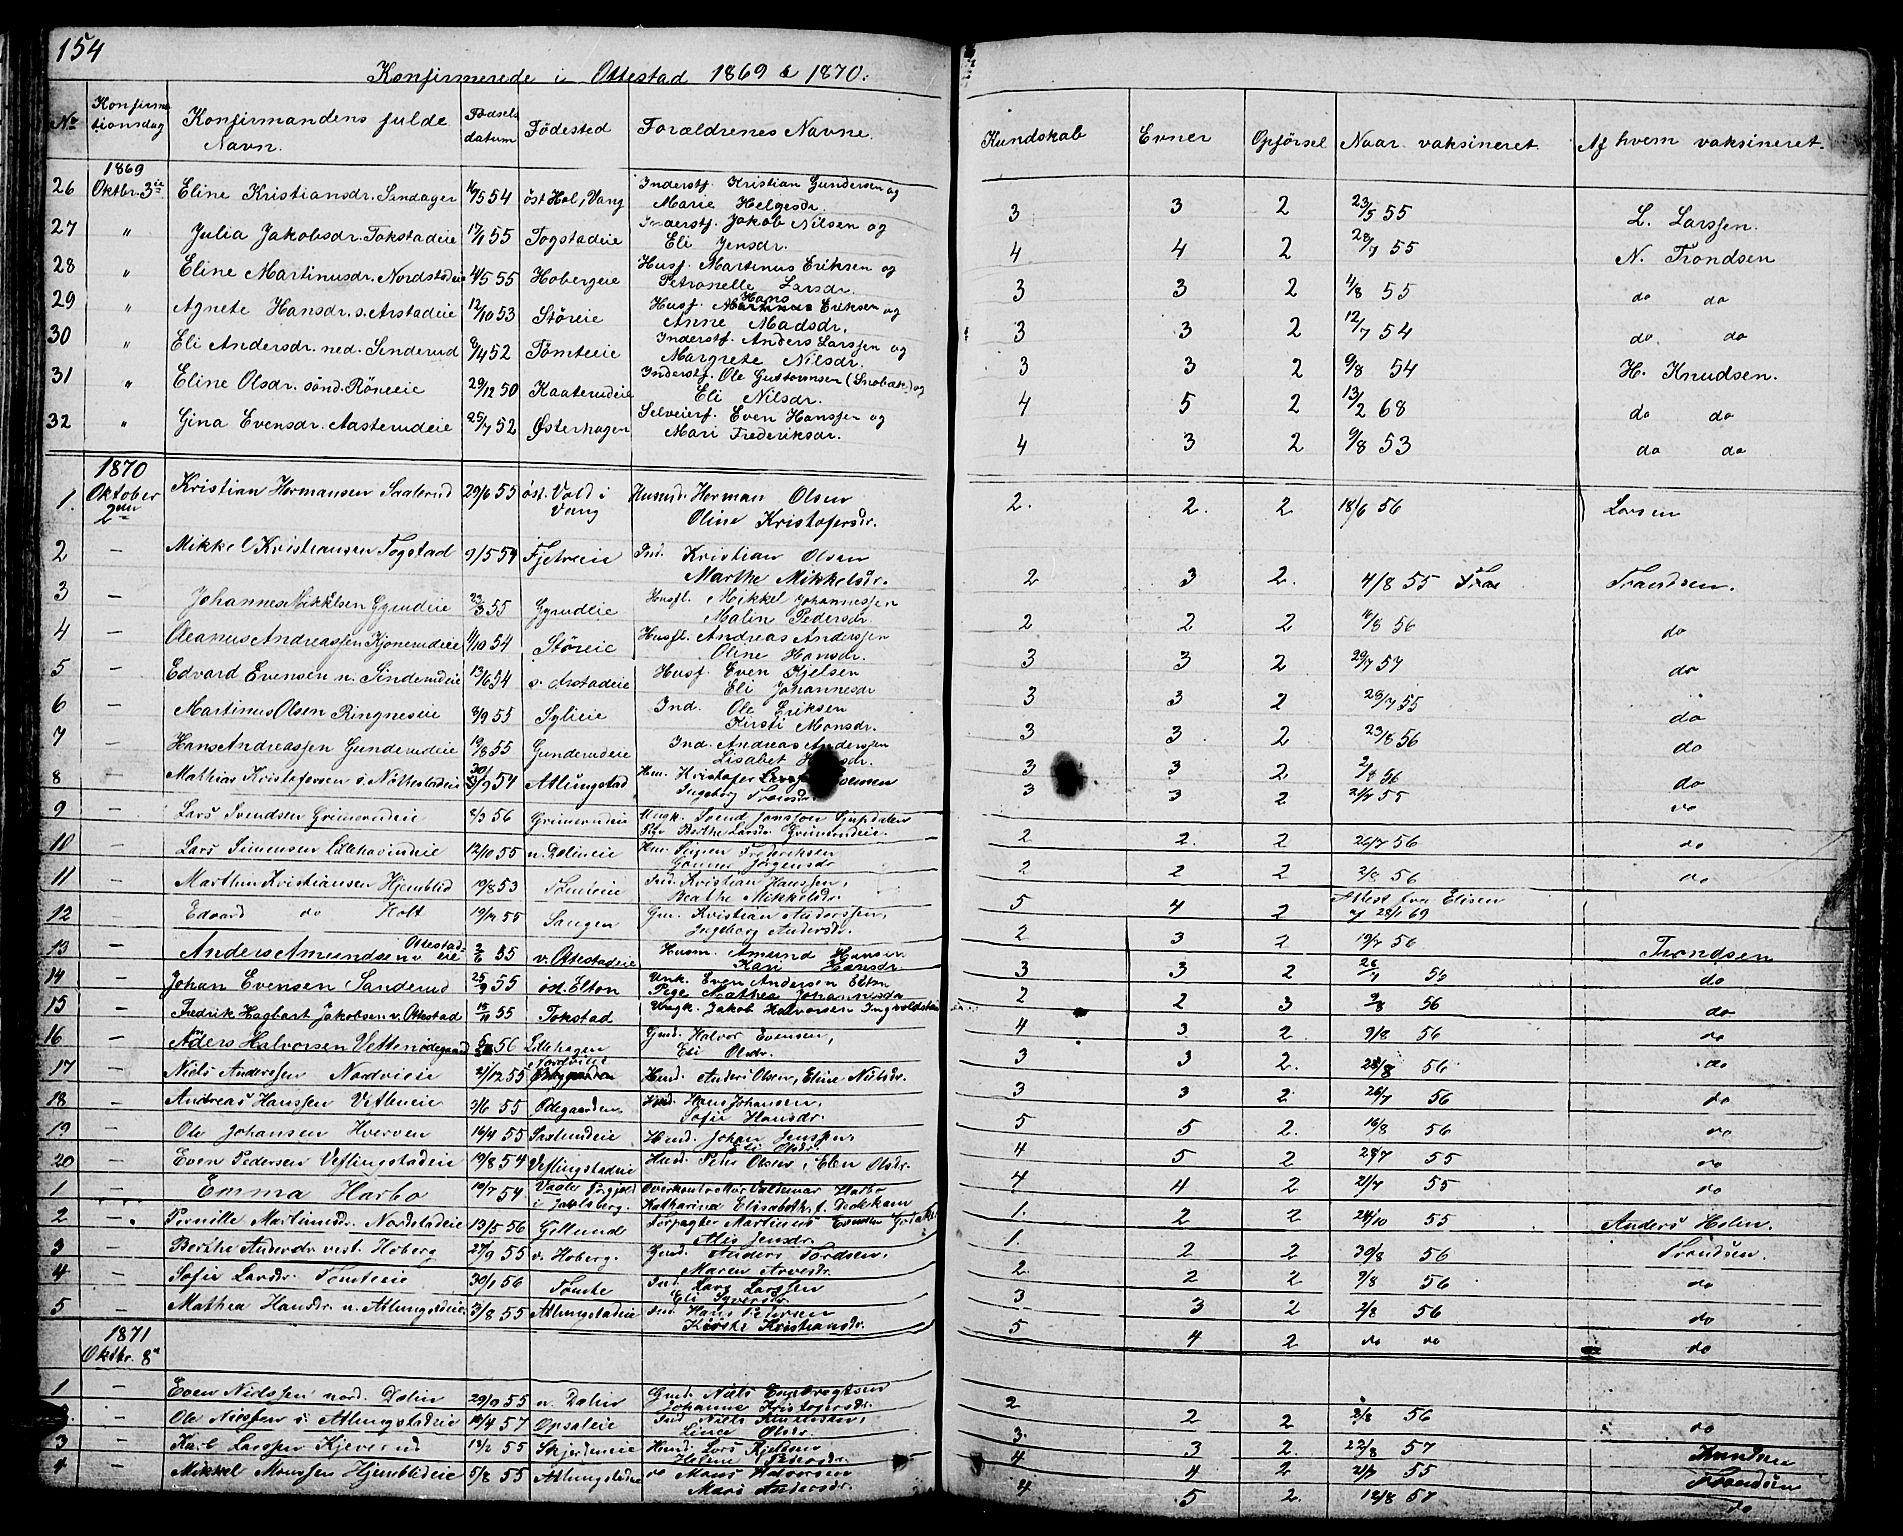 154
Konfirmerede i Ottestad 1869 & 1870.
No Konfirmationsdag Konfirmandens fulde Navn. Fødselsdatum Fødested Forældrenes Navne. Kundskab Evner Opførsel Naar vaksineret. Af hvem vaksineret.
1869
26 Oktbr. 3die Eline Kristiansdr. Sandager 16/5 54 øst Hol, Vang Inderstf. Kristian Gundersen og Marie Helgesdr. 3 3 2 23/5 55 L. Larssen.
27 " Julia Jakobsdr. Tokstadeie 17/1 55 Togstadeie Inderstf. Jakob Nilsen og Eli Jensdr. 4 4 2 28/7 55 N. Trondsen
28 " Eline Martinusdr. Nordstadeie 4/5 55 Hobergeie Husf. Martinus Eriksen og Petronelle Larsdr. 3 3 2 4/8 55 do do
29 " Agnete Hansdr. s. Arstadeie 12/10 53 Støreie Husf. Hans Eriksen og Anne Madsdr. 3 3 2 12/7 54 do do
30 " Eli Andersdr. ned. Sinderud 8/4 52 Tomteeie Inderstf. Anders Larssen og Margrete Nilsdr. 3 3 2 9/8 54 H. Knudsen.
31 " Eline Olsdr. sønd. Røneeie 29/12 50 Kaaterudeie Inderstf. Ole Guttormsen (Snobæk) og Eli Nilsdr. 4 5 2 13/2 68 do do
32 " Gina Evensdr. Aasterudeie 25/7 52 Østerhagen Selveierf. Even Hanssen og Mari Frederiksdr. 4 3 2 9/8 53 do do
1870
1. Oktober 2den Kristian Hermansen Saalerud 29/6 55 øst. Vold i Vang Husmd. Herman Olsen Oline Kristofersdr. 2. 2. 2 18/6 56 Larsen
2 — Mikkel Kristiansen Togstad 9/5 54 Fjetreeie Ind. Kristian Olsen Marthe Mikkelsdr. 2 3 2. 4/8 55 Trondsen.
3 — Johannes Mikkelsen Gyrudeie 23/3 55 Gyrudeie Husfl. Mikkel Johannessen Malin Pedersdr. 2 2 2 16/8 56 do
4 — Oleanus Andreassen Kjonerudeie 11/10 54 Støreie Husfl. Andreas Anderssen Oline Hansdr. 3 3 2 29/7 57 do
5 — Edvard Evensen n. Sinderudeie 13/6 54 s. Arstadeie Husf. Even Kjelsen Eli Johannesdr 3 3 2 28/7 55 do
6 — Martinus Olsen Ringneseie 8/9 55 Sylieie Ind. Ole Eriksen Kirsti Monsdr. 3 3. 2 23/8 56 do
7 — Hans Andreassen Gunderudeie 19/8 55 Gunderudeie Ind. Andreas Anderssen Lisabet 3 3 2 2/8 56 do
8 — Mathias Kristofersen s. Nøttestadeie 54 Atlungstad Hm. Kristofer Ingeborg 3 3 2 21/7 55 do
9 — Lars Svendsen Grimerudeie 8/3 56 Grimerudeie Ungk. Svend Jonsson Pge Berthe Larsdr. Grimerudeie. 2 2. 2 26/7 56 do
10 — Lars Simensen Lillehovindeie 12/10 55 n. Dalineie Hm. Simen Frederiksen Gønner Jørgensdr 2 2 2 2/8 56 do
11 — Marthin Kristiansen Hjemblid 19/8 53 Tomteeie Ind. Kristian Hanssen, Beathe Mikkelsdr. 5 4 2 Attest fra Elisen af 28/1 69
12 — Edvard do Holt 19/12 55 Sangen Gm. Kristian Anderssen, Ingeborg Andersdr. 2 3 2 19/7 56 Trondsen
13 — Anders Amundsen v. Ottestadeie 2/6 55 v. Ottestadeie Husm. Amund Hansen Kari Hansdr. 3 3 2 26/7 56 do
14 — Johan Evensen Sanderud 25/9 55 øst. Elton Unk. Even Andersen Elton Pige Mathea Johannesdr 2 2 3 2/8 56 do
15 — Fredrik Hagbart Jakobsen v. Ottestad 15/11 55 Tokstad Ungk. Jakob Halvorsen Ingvoldstad 4 3 2 9/8 56 do
16 — Anders Halvorsen Vetten ødegaard 56 Lillehagen Gmd. Halvor Evensen, Eli Olsdr. 3 3 2. 28/8 56 do
17 — Niels Anderssen Nordvieie 21/12 55 Nordvieie Husd. Anders Olsen, Eline Nielsdr. 3 3 2 26/7 56 do
18 — Andreas Hanssen Vetleneie 9/6 55 Ødegaarden Hmd. Hans Johansen, Sofie Hansdr. 5 5 2. 16/8 56 do
19 — Ole Johansen Hverven 16/4 55 Saxlundeie Husd. Johan Jenssen, Eli Olsdr. 4 5 2 28/7 55 do
20 — Even Pedersen Veflingstadeie 19/8 54 Veflingstadeie Husd. Peder Olsen, Elen Olsdr. 4 4 2 21/7 55 do
1 — Emma Harbo 19/7 54 Vaale Prgjeld i Jarlsberg. Overkontrollør Valdemar Harbo Katharina Elisabeth f. Dockham 1. 2 2 24/10 55 Anders Holm.
2 — Pernille Martinusdr. Nordstadeie 13/5 56 Gillund Forpagter Martinus Alis Jensdr. 1. 2 2 30/8 56 Trondsen.
3 — Berthe Andersdr. vest. Hoberg 27/9 55 v. Hoberg. Gmd. Anders Tordsen, Maren Arvesdr. 2. 2 2 9/8 56 do
4 — Sofie Larsdr. Tomteeie 30/1 56 Tomte Ind. Lars Larssen Eli Syversdr. 3 3 2 2/8 56 do
5 — Mathea Hansdr. n. Atlungstadeie 3/8 55 Atlungstadeie Ind. Hans Petersen Kirsti Kristiansdr. 5 4 2 do do do
1871
Oktbr. 8de
1 — Even Nielssen nord. Dalin 29/9 55 n. Dalin Gmd. Niels Engebregtsen Johanne Kristofersdr. 2 2 2 2/8 56 do
2. — Ole Nielssen s. Atlungstadeie 18/4 57 Opsaleie Ind. Niels Line Olsdr. 3. 3 2. 22/8 57 Knudsen
3 — Karl Larssen Kjeverud 13/2 55 Skjerdeneie Husd. Lars Kjeldsen Helene Pedersdr. 4 4 2 21/7 55 Trondsen
4 — Mikkel Monssen Hjemblideie 5/8 55 Atlungstadeie do Mons Halvorsen Mari Andersdr. 4 5 2. 18/8 57 do